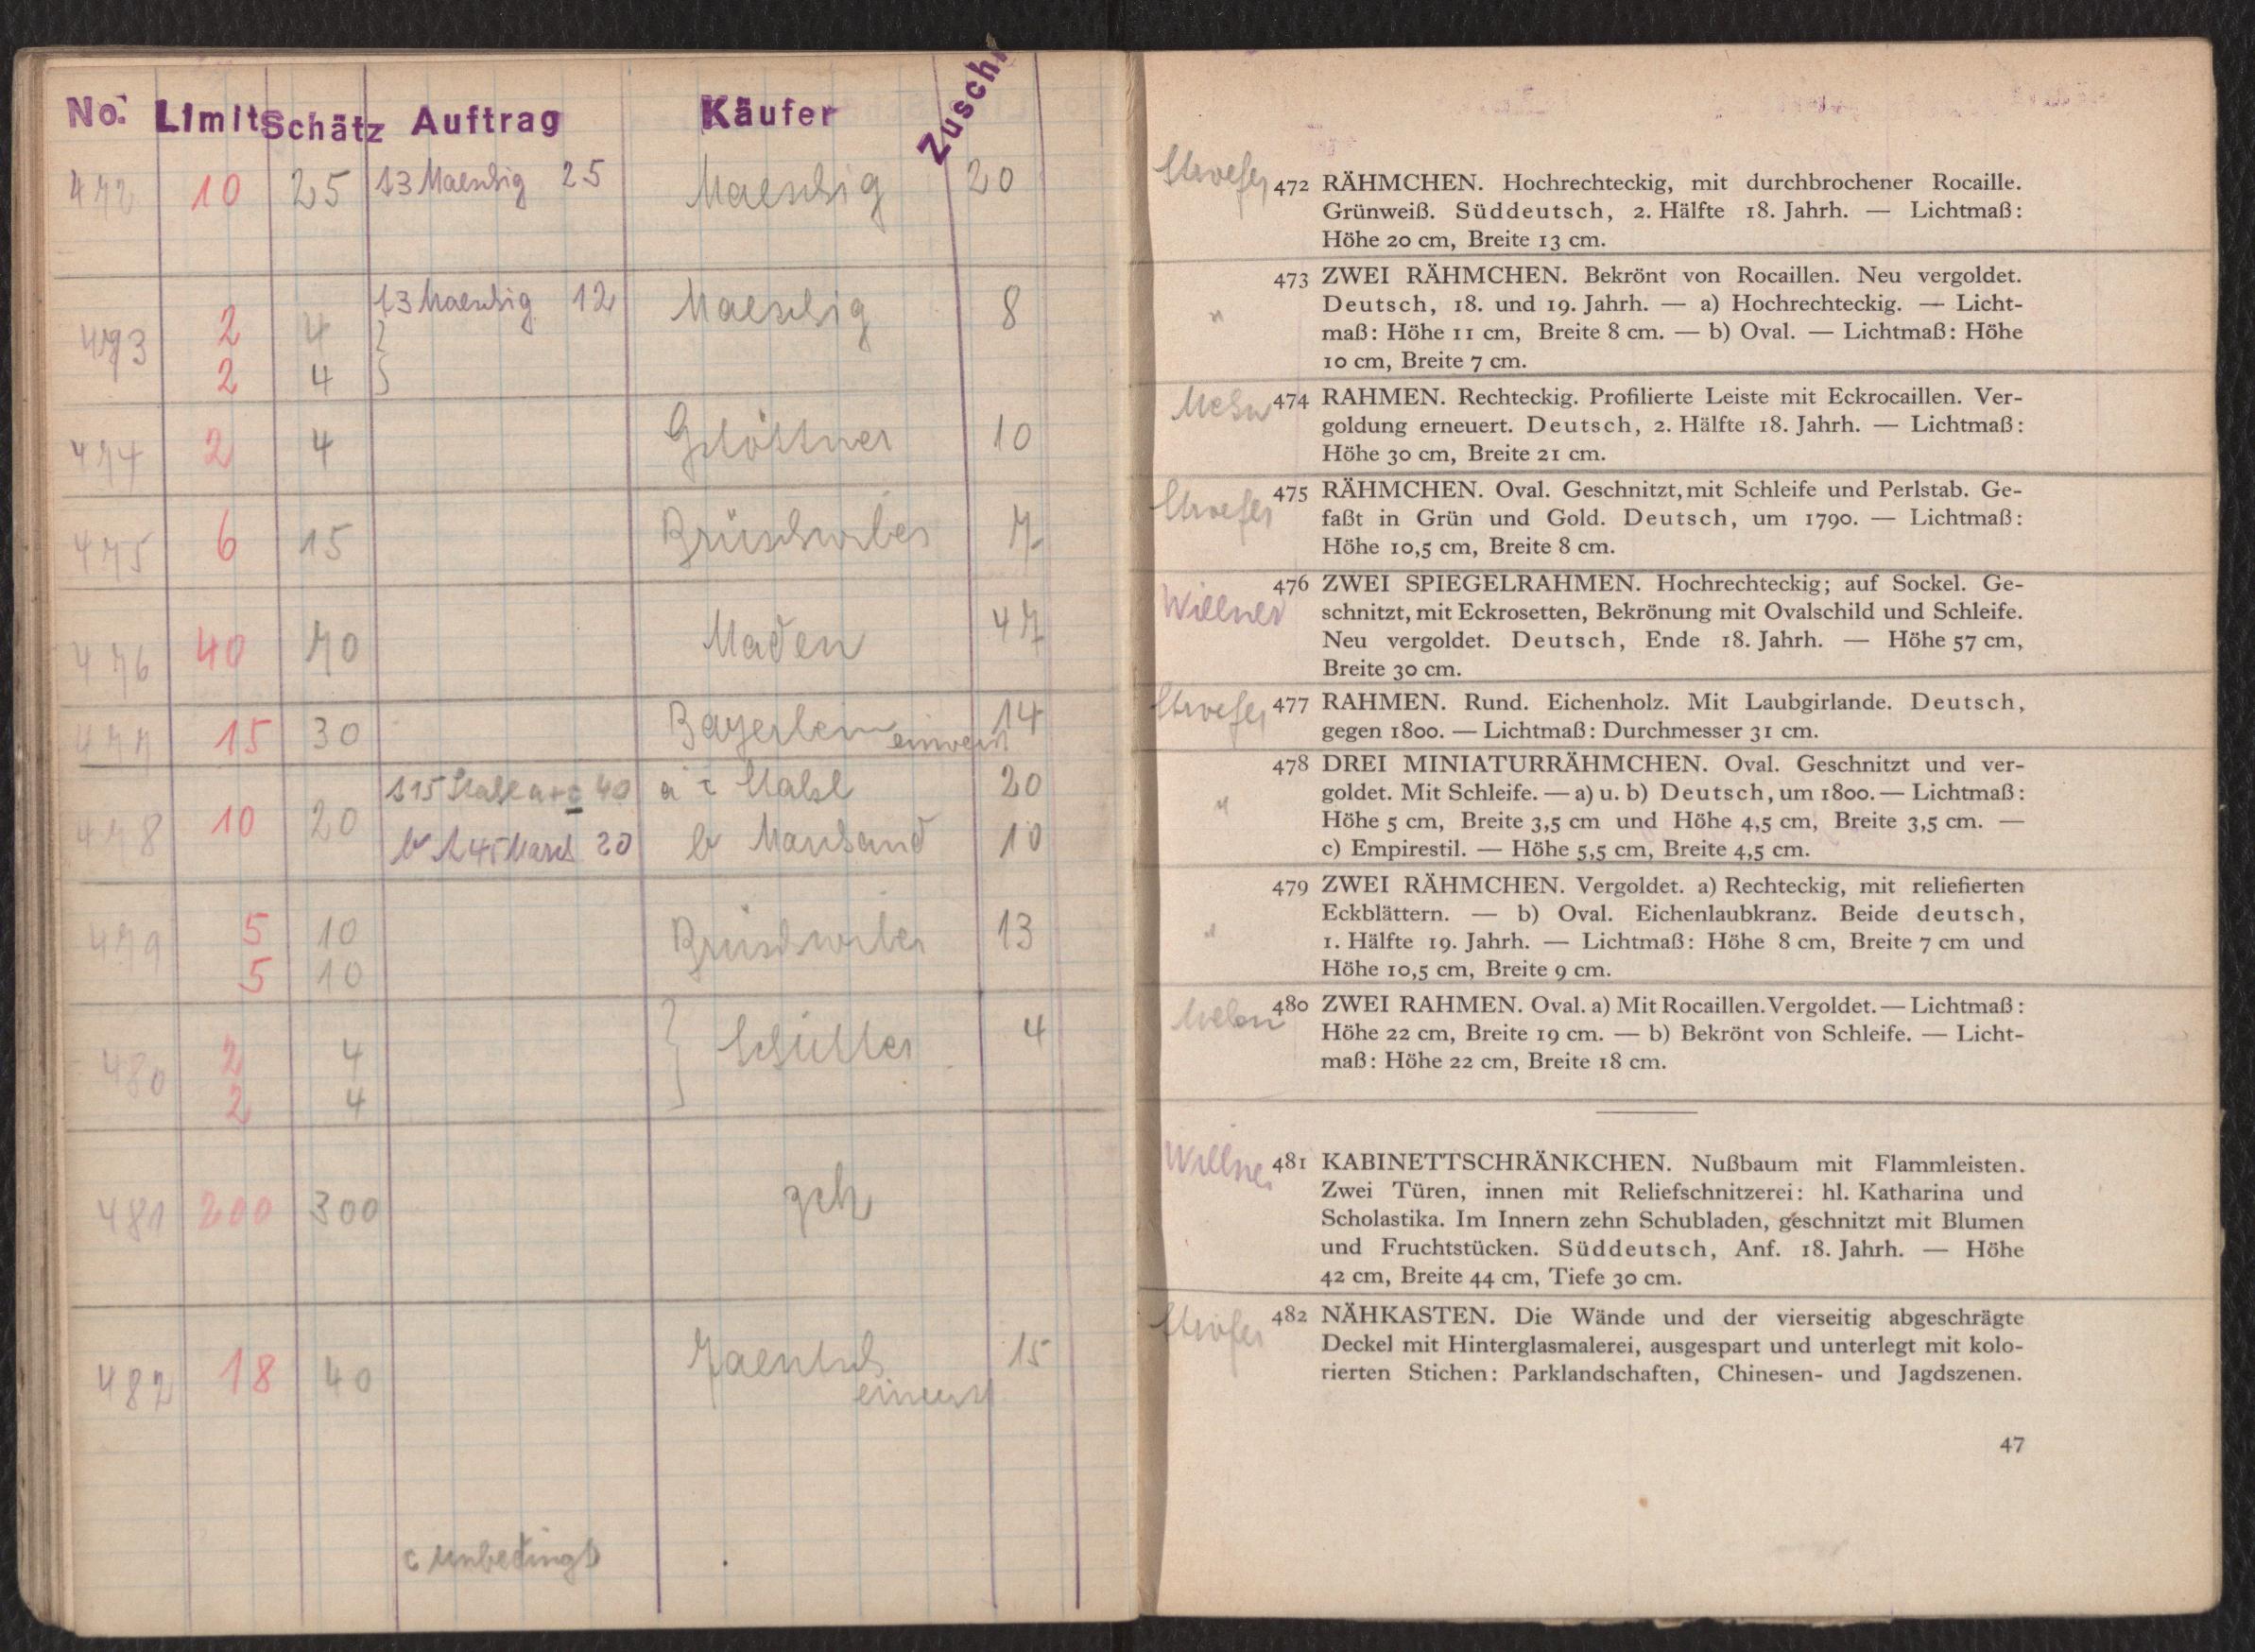 No. Limit Schätz Auftrag Käufer Zuschl
472 10 25 13 Maeshig 25 Maeshig 20
13 Maeshig 12 Maeshig 8
473 2 4
2 4
474 2 4 10
475 6 15 7
476 40 70 Maden 47
477 15 30 Bayerlein 14
478 10 20 a c 20
20 b 10
479 5 10 13
5 10
480 2 4 4
2 4
481 200 300 zch
482 18 40 15
c unbedingt
472 RÄHMCHEN. Hochrechteckig, mit durchbrochener Rocaille.
Grünweiß. Süddeutsch, 2. Hälfte 18. Jahrh. — Lichtmaß:
Höhe 20 cm, Breite 13 cm.
473 ZWEI RÄHMCHEN. Bekrönt von Rocaillen. Neu vergoldet.
" Deutsch, 18. und 19. Jahrh. — a) Hochrechteckig. — Licht-
maß: Höhe 11 cm, Breite 8 cm. — b) Oval. — Lichtmaß: Höhe
10 cm, Breite 7 cm.
474 RAHMEN. Rechteckig. Profilierte Leiste mit Eckrocaillen. Ver-
goldung erneuert. Deutsch, 2. Hälfte 18. Jahrh. — Lichtmaß:
Höhe 30 cm, Breite 21 cm.
475 RÄHMCHEN. Oval. Geschnitzt, mit Schleife und Perlstab. Ge-
faßt in Grün und Gold. Deutsch, um 1790. — Lichtmaß:
Höhe 10,5 cm, Breite 8 cm.
Willner 476 ZWEI SPIEGELRAHMEN. Hochrechteckig; auf Sockel. Ge-
schnitzt, mit Eckrosetten, Bekrönung mit Ovalschild und Schleife.
Neu vergoldet. Deutsch, Ende 18. Jahrh. — Höhe 57 cm,
Breite 30 cm.
477 RAHMEN. Rund. Eichenholz. Mit Laubgirlande. Deutsch,
gegen 1800. — Lichtmaß: Durchmesser 31 cm.
478 DREI MINIATURRÄHMCHEN. Oval. Geschnitzt und ver-
" goldet. Mit Schleife. — a) u. b) Deutsch, um 1800. — Lichtmaß:
Höhe 5 cm, Breite 3,5 cm und Höhe 4,5 cm, Breite 3,5 cm. —
c) Empirestil. — Höhe 5,5 cm, Breite 4,5 cm.
479 ZWEI RÄHMCHEN. Vergoldet. a) Rechteckig, mit reliefierten
Eckblättern. — b) Oval. Eichenlaubkranz. Beide deutsch,
" 1. Hälfte 19. Jahrh. — Lichtmaß: Höhe 8 cm, Breite 7 cm und
Höhe 10,5 cm, Breite 9 cm.
480 ZWEI RAHMEN. Oval. a) Mit Rocaillen. Vergoldet. — Lichtmaß:
Höhe 22 cm, Breite 19 cm. — b) Bekrönt von Schleife. — Licht-
maß: Höhe 22 cm, Breite 18 cm.
Willner 481 KABINETTSCHRÄNKCHEN. Nußbaum mit Flammleisten.
Zwei Türen, innen mit Reliefschnitzerei: hl. Katharina und
Scholastika. Im Innern zehn Schubladen, geschnitzt mit Blumen
und Fruchtstücken. Süddeutsch, Anf. 18. Jahrh. — Höhe
42 cm, Breite 44 cm, Tiefe 30 cm.
482 NÄHKASTEN. Die Wände und der vierseitig abgeschrägte
Deckel mit Hinterglasmalerei, ausgespart und unterlegt mit kolo-
rierten Stichen: Parklandschaften, Chinesen- und Jagdszenen.
47